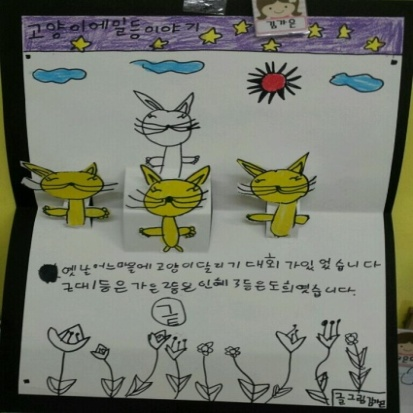 고양이에일등이야기
김가은
옛날 어느마을에 고양이달리기 대회 가있었습니다
근대1등은 가은 2등은 인혜 3등은도희였습니다.
끝
글 그림 김가은